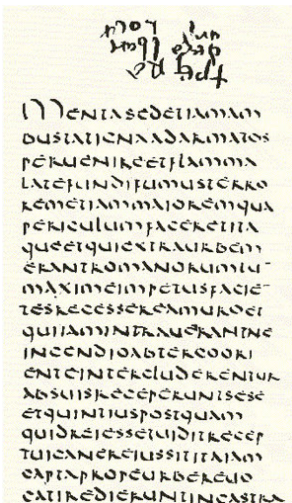 MENTASEDETIAMAM
BUSTATIGNAADARMATOS
PERUENIREETFLAMMA
LATEFUNDIFUMUSTERRO
REMETIAMMAIOREMQUA
PERICULUMFACERETITA
QUEETQUIEXTRAURBEM
ERANTROMANORUMTU¯
MAXIMEIMPETUSFACIE¯
TESRECESSEREAMUROET
QUIIAMINTRAUERANTNE
INCENDIOABTERGOORI
ENTEINTERCLUDERENTUR
ABSUISRECEPERUNTSESE
ETQUINTIUSPOSTQUAM
QUIDREIESSETUIDITRECEP
TUICANEREIUSSITITAIAM
CAPTAPROPEURBEREUO
CATIREDIERUNTINCASTRA